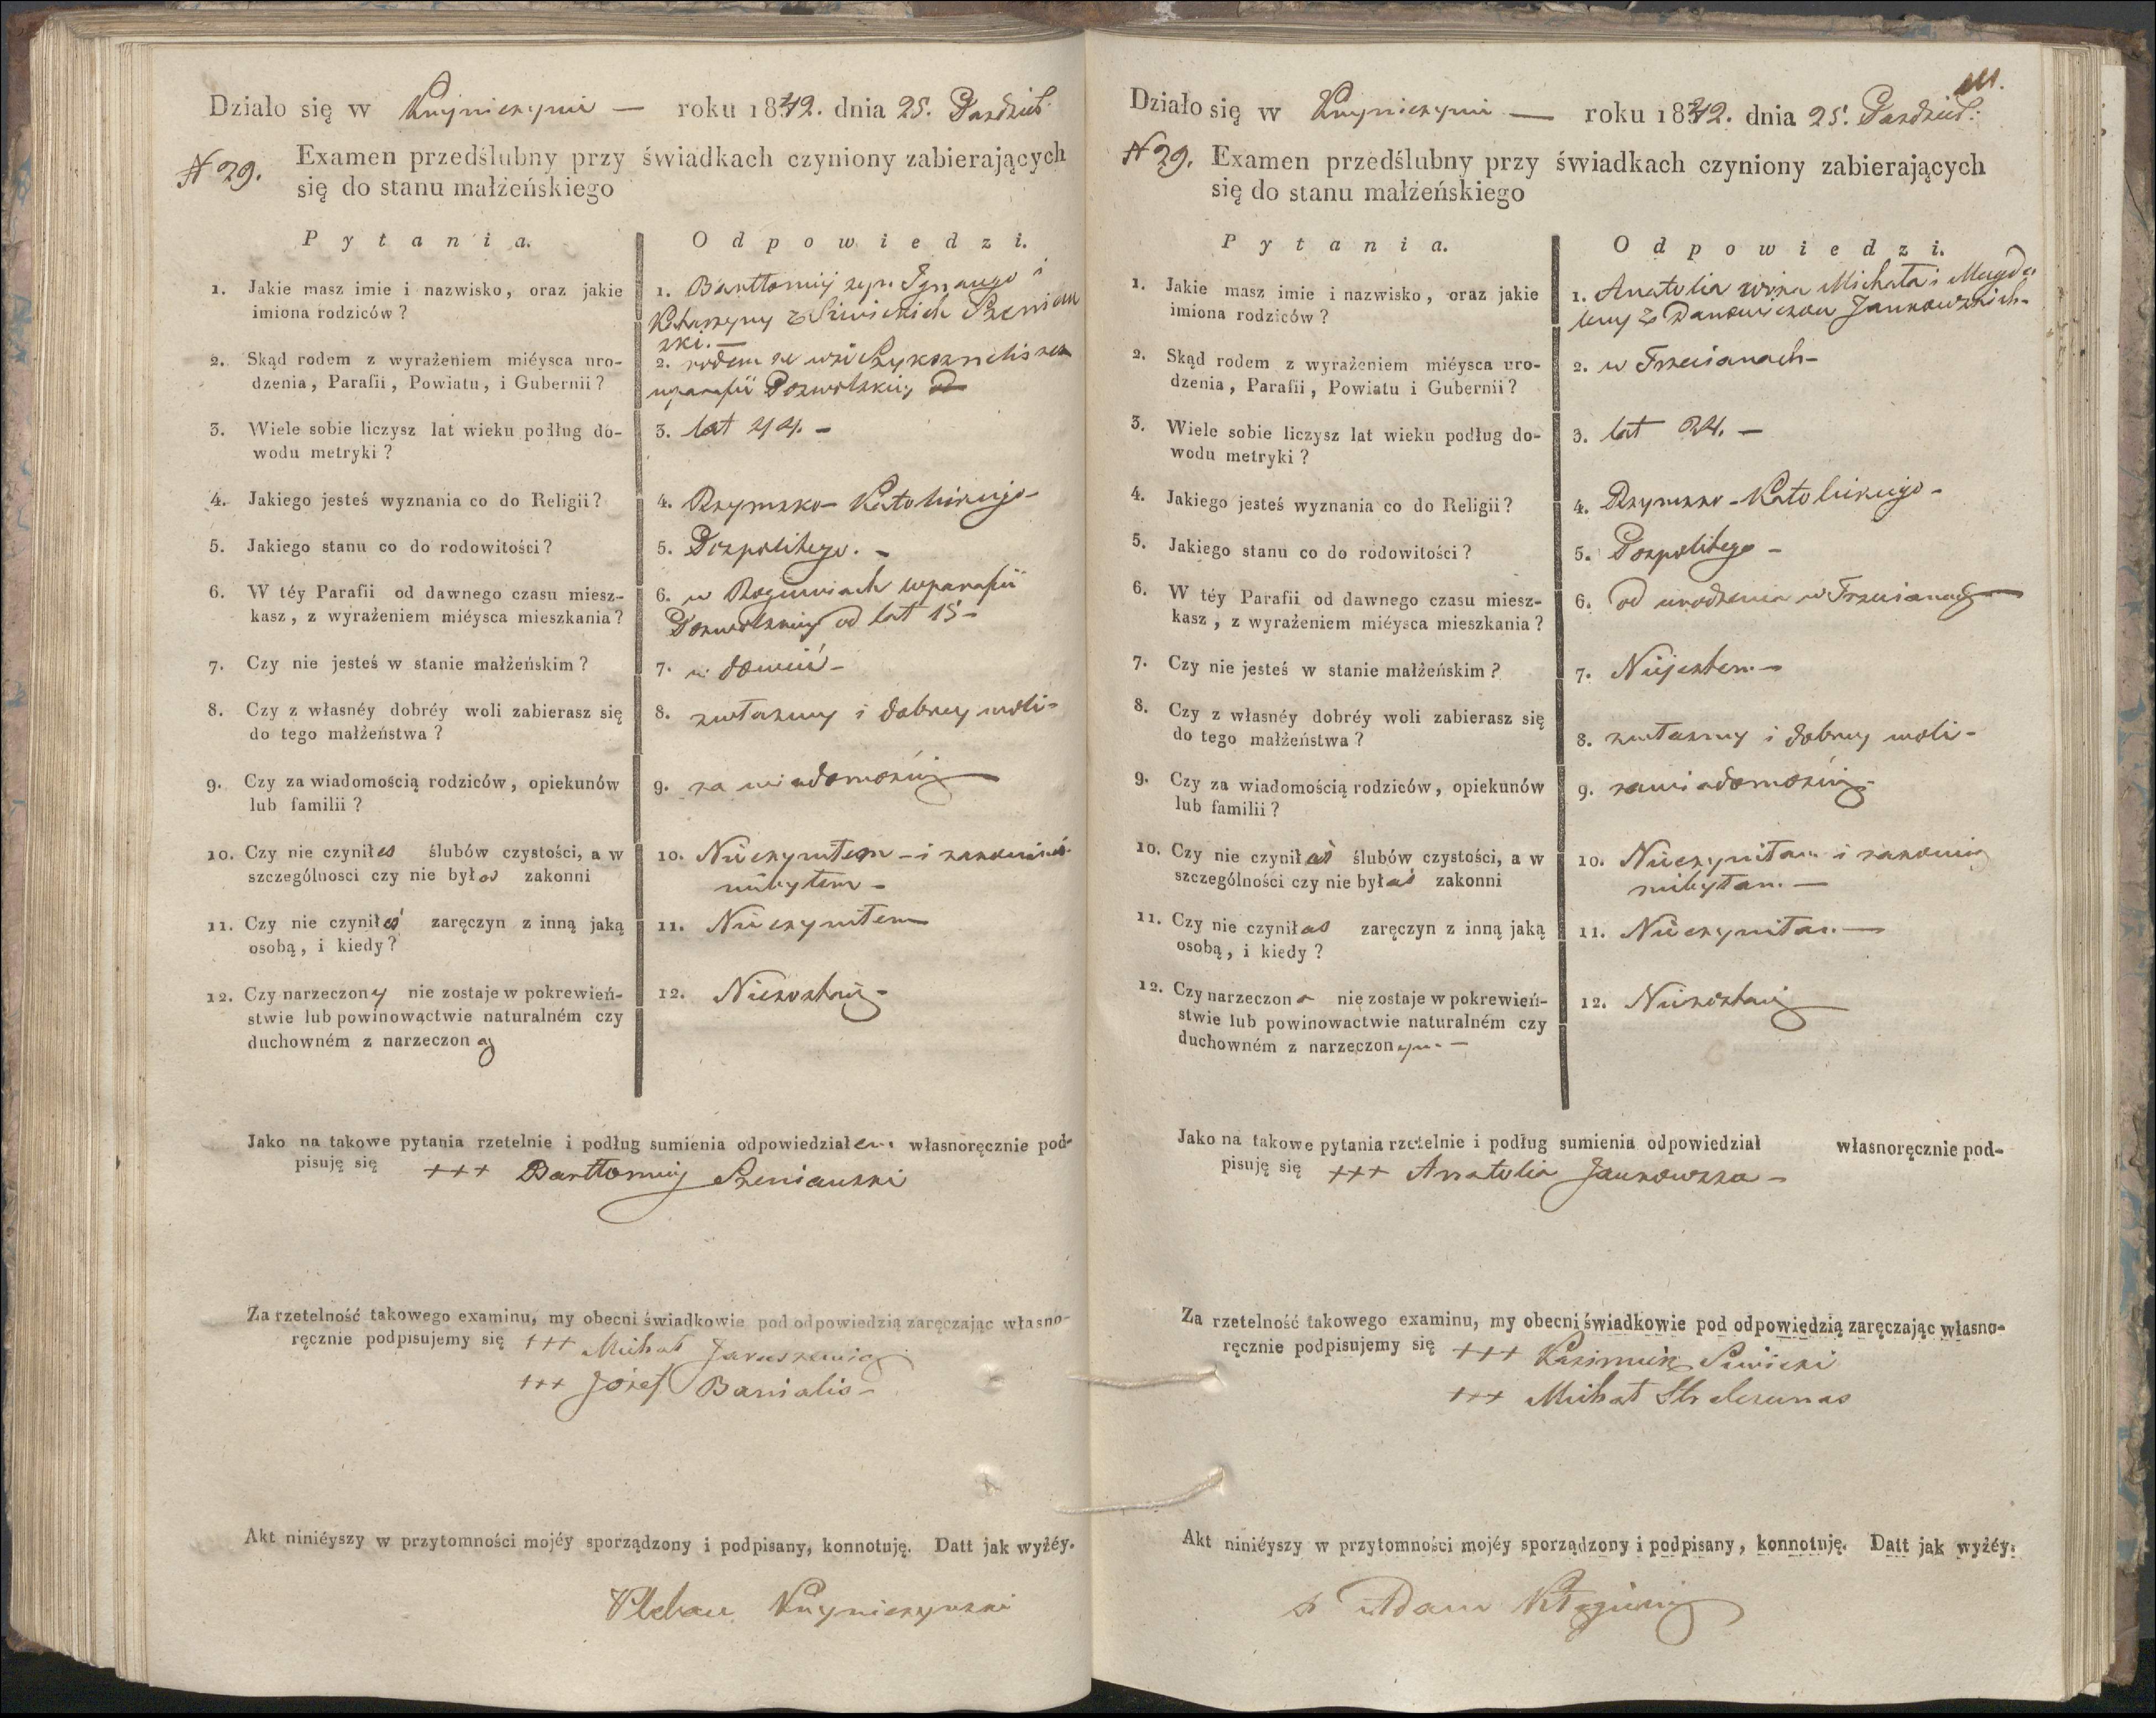 Działo się w Kuyniczynie — roku 1842. dnia 25. Pazdzier:
N 29. Examen przedślubny przy świadkach czyniony zabierających
się do stanu małżeńskiego
Pytania. Odpowiedzi.
1. Jakie masz imie i nazwisko, oraz jakie
imiona rodziców?
1. Bartłomiej syn Ignacego i
Katarzyny z Siwickich Szeniaw
ski. —
2. Skąd rodem z wyrażeniem miéysca uro-
dzenia, Parafii, Powiatu, i Gubernii?
2. rodem ze wsi
w parafii Pozwolskiey
3. Wiele sobie liczysz lat wieku podług do-
wodu metryki?
3. lat 44. —
4. Jakiego jesteś wyznania co do Religii?
4. Rzymsko-Katolickiego-
5. Jakiego stanu co do rodowitości?
5. Pospolitego. -
6. W téy Parafii od dawnego czasu miesz-
kasz, z wyrażeniem miéysca mieszkania?
6. w w parafii
Pozwolskiey od lat 15-
7. Czy nie jesteś w stanie małżeńskim?
7. wdowiec-
8. Czy z własnéy dobréy woli zabierasz się
do tego małżeństwa?
8. z własney i dobrey woli-
9. Czy za wiadomością rodziców, opiekunów
lub familii?
9. za wiadomością
10. Czy nie czyniłes ślubów czystości, a w
szczególnosci czy nie byłes zakonni
10. Nie czyniłem - i
nie byłem-
11. Czy nie czyniłeś zaręczyn z inną jaką
osobą, i kiedy?
11. Nie czyniłem
12. Czy narzeczony nie zostaje w pokrewień-
stwie lub powinowactwie naturalném czy
duchowném z narzeczoną
12. Nie zostaię-
Jako na takowe pytania rzetelnie i podług sumienia odpowiedziałem własnoręcznie pod-
pisuję się +++ Bartłomiey Szeniawski
Za rzetelność takowego examinu, my obecni świadkowie pod odpowiedzią zaręczając własno-
ręcznie podpisujemy się +++ Michał Jaruszewicz
+++ Józef Banialis-
Akt niniéyszy w przytomności mojéy sporządzony i podpisany, konnotuję. Datt jak wyżéy.
Pleban
Działo się w Kuyniczynie — roku 1842. dnia 25. Pazdzier:
N 29. Examen przedślubny przy świadkach czyniony zabierających
się do stanu małżeńskiego
Pytania. Odpowiedzi.
1. Jakie masz imie i nazwisko, oraz jakie
imiona rodziców?
1. Anatolia córka Michała i Magda
leny z Jankowskich-
2. Skąd rodem z wyrażeniem miéysca uro-
dzenia, Parafii, Powiatu i Gubernii?
2. w Trzcianach-
3. Wiele sobie liczysz lat wieku podług do-
wodu metryki?
3. lat 24. —
4. Jakiego jesteś wyznania co do Religii?
4. Rzymsko-Katolickiego-
5. Jakiego stanu co do rodowitości?
5. Pospolitego -
6. W téy Parafii od dawnego czasu miesz-
kasz, z wyrażeniem miéysca mieszkania?
6. od urodzenia w Trzcianach
7. Czy nie jesteś w stanie małżeńskim?
7. Nie jestem-
8. Czy z własnéy dobréy woli zabierasz się
do tego małżeństwa?
8. z własney i dobrey woli-
9. Czy za wiadomością rodziców, opiekunów
lub familii?
9. za wiadomością-
10. Czy nie czyniłaś ślubów czystości, a w
szczególności czy nie byłaś zakonni
10. Nie czyniłam i zakonnicą
nie byłam. —
11. Czy nie czyniłas zaręczyn z inną jaką
osobą, i kiedy?
11. Nie czyniłam —
12. Czy narzeczona nie zostaje w pokrewień-
stwie lub powinowactwie naturalném czy
duchowném z narzeczonym —
12. Nie zostaię
Jako na takowe pytania rzetelnie i podług sumienia odpowiedział własnoręcznie pod-
pisuję się +++ Anatolia Jankowska-
Za rzetelność takowego examinu, my obecni świadkowie pod odpowiedzią zaręczając własno-
ręcznie podpisujemy się +++ Kazimierz Siwicki
+++ Michał
Akt niniéyszy w przytomności mojéy sporządzony i podpisany, konnotuję. Datt jak wyżéy.
X Adam